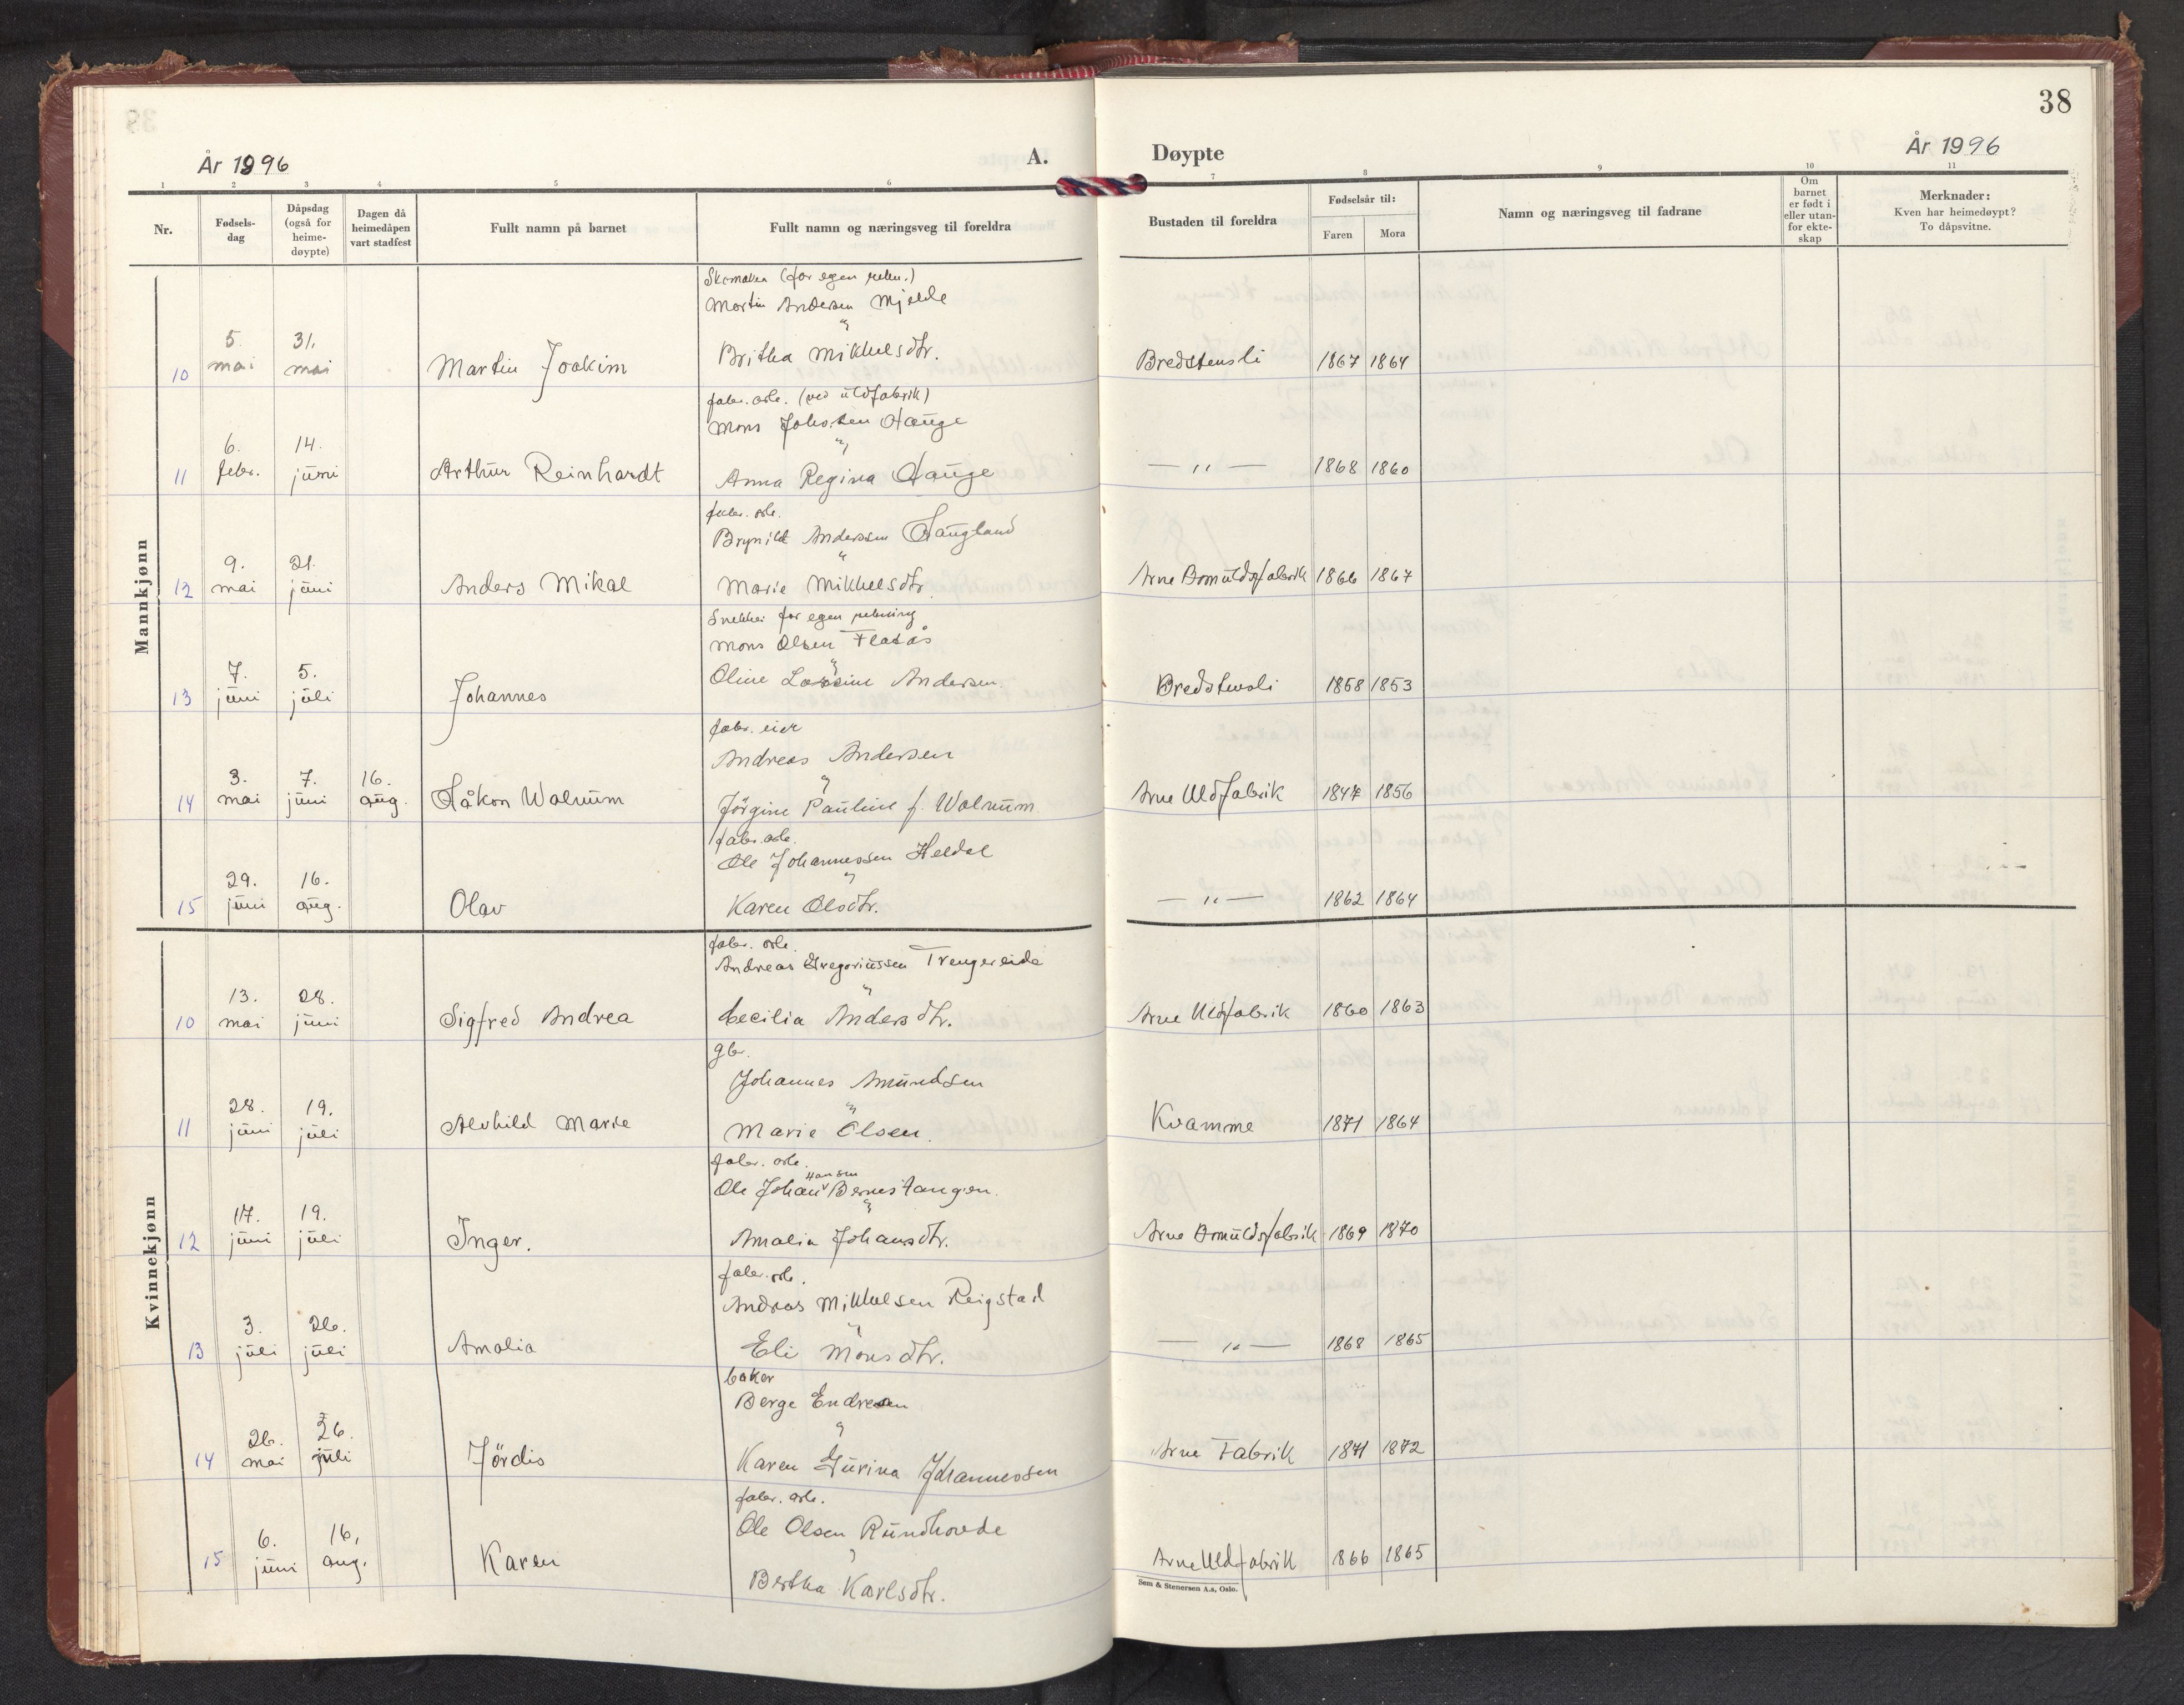 38
År 1996
A.
Døypte
År 1996
1 2 3 4 5 6 7 8 9 10 11
Nr.
Fødsels-
dag
Dåpsdag
(også for
heime-
døypte)
Dagen då
heimedåpen
vart stadfest
Fullt namn på barnet
Fullt namn og næringsveg til foreldra
Bustaden til foreldra
Fødselsår til:
Faren Mora
Namn og næringsveg til fadrane
Om
barnet
er født i
eller utan-
for ekte-
skap
Merknader:
Kven har heimedøypt?
To dåpsvitne.
Mankjønn
Skomaker (for egen rekn.)
Martin Andersen Mjelde
"
10 5. mai 31. mai Martin Joakim Britha Mikkelsdtr. Bredstensli 1867 1864
fabr. arb. (ved uldfabrik)
Mons Johs.sen Hauge
"
11 6. febr. 14. juni Arthur Reinhardt Anna Regina Hauge — " — 1868 1860
fabr. arb.
Brynild Anderssen Haugland
"
12 9. mai 21. juni Anders Mikal Marie Mikkelsdtr. Arne Bomuldsfabrik 1866 1867
Snekker for egen rekning
Mons Olsen Flatås
"
13 7. juni 5. juli Johannes Oline Andersen. Bredstensli 1858 1853
fabr. eier
Andreas Andersen
"
14 3. mai 7. juni 16. aug. Håkon Walnum Jörgine Pauline f. Walnum Arne Uldfabrik 1847 1856
fabr. arb.
Ole Johannessen Heldal
"
15 29. juni 16. aug. Olav Karen Olsdtr. — " — 1862 1864
Kvinnekjønn
fabr. arb.
Andreas Gregoriussen Trengereide
"
10 13. mai 28. juni Sigfred Andrea Cecilia Andersdtr. Arne Uldfabrik 1860 1863
gbr.
Johannes Amundsen
"
11 28. juni 19. juli Alvhild Marie Marie Olsen. Kvamme 1871 1864
fabr. arb.
Hansen
Ole Johan Bernstangen.
"
12 17. juni 19. juli Inger. Amalia Johansdtr. Arne Bomuldsfabrik 1869 1870
fabr. arb.
Andreas Mikkelsen Reigstad
"
13 3. juli 26. juli Amalia Eli Monsdtr. — " — 1868 1865
baker
Berge Endresen
"
14 26. mai 26. juli Jördis Karen Gurina Johannessen Arne Fabrik 1871 1872
fabr. arb.
Ole Olsen Rundhovde
"
15 6. juni 16, aug. Karen Bertha Karlsdtr. Arne Uldfabrik 1866 1865
Sem & Stenersen A.s, Oslo.